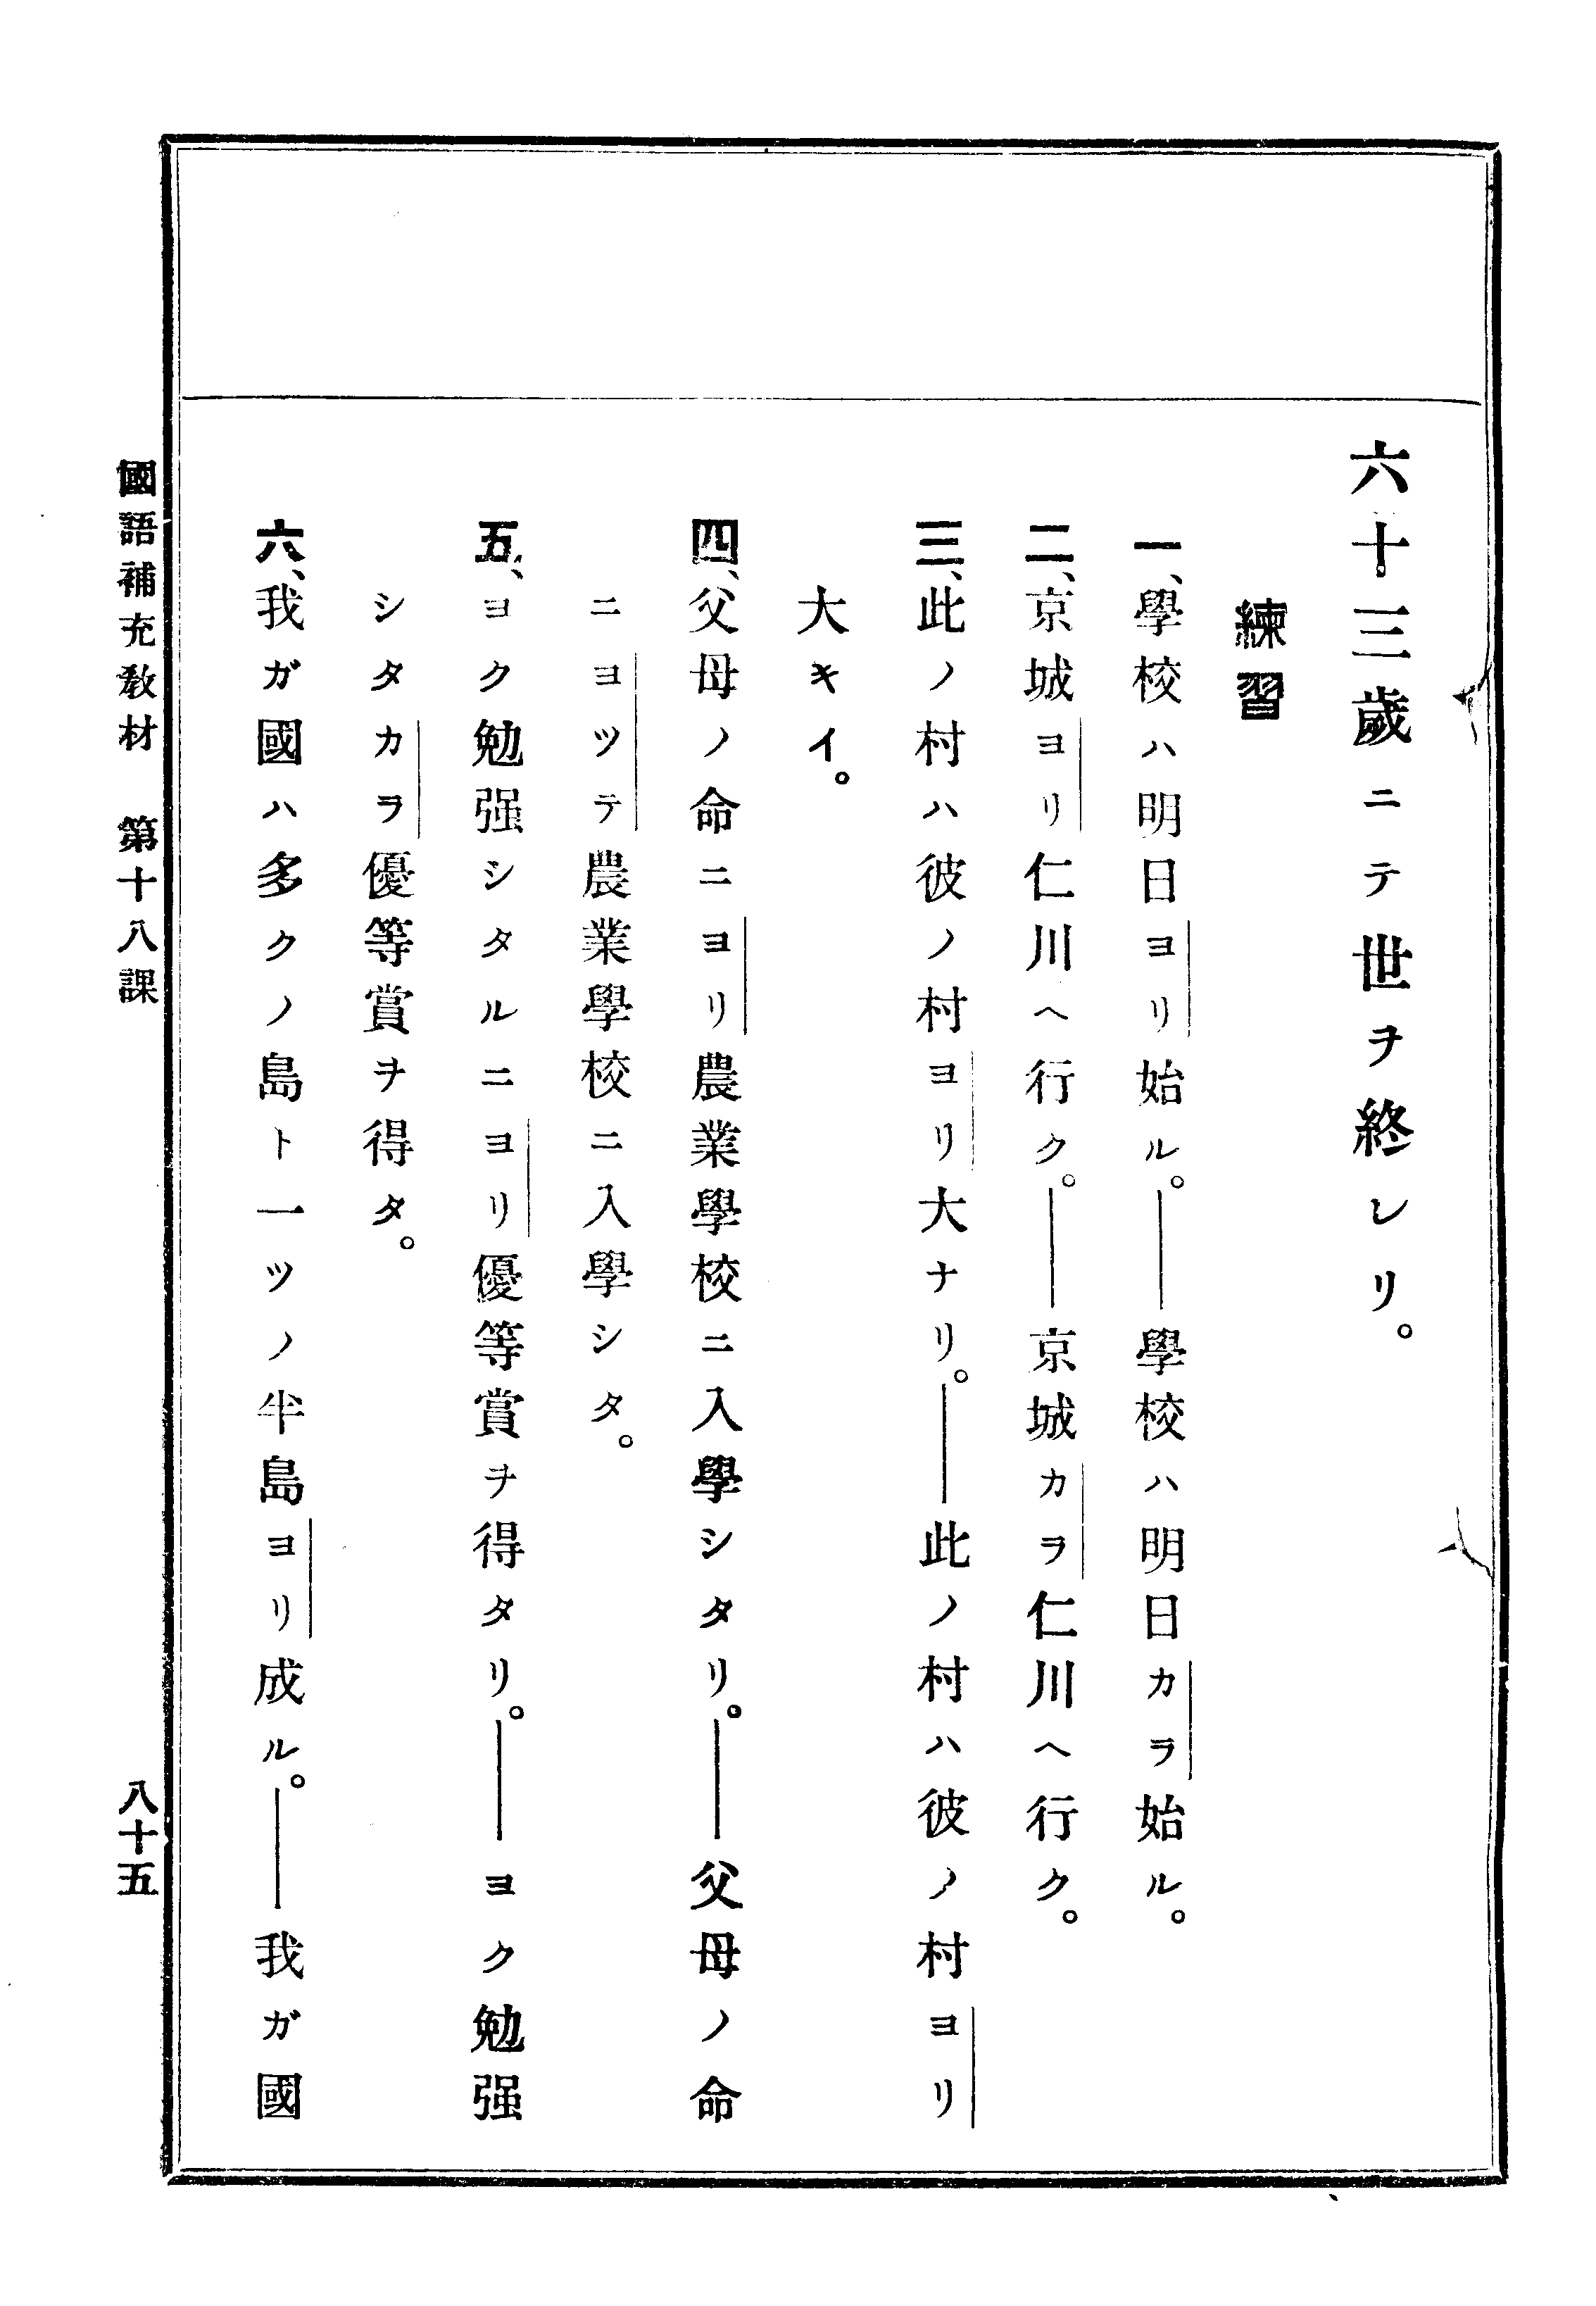 六十三歲ニテ世ヲ終レリ。
練習
一、學校ハ明日ヨリ始ル。――學校ハ明日カラ始ル。
二、京城ヨリ仁川ヘ行ク。――京城カラ仁川ヘ行ク。
三、此ノ村ハ彼ノ村ヨリ大ナリ。――此ノ村ハ彼ノ村ヨリ
大キイ。
四、父母ノ命ニヨリ農業學校ニ入學シタリ。――父母ノ命
ニヨツテ農業學校ニ入學シタ。
五、ヨク勉强シタルニヨリ優等賞ヲ得タリ。――ヨク勉强
シタカラ優等賞ヲ得タ。
六、我ガ國ハ多クノ島ト一ツノ半島ヨリ成ル。――我ガ國
國語補充教材　第十八課
八十五